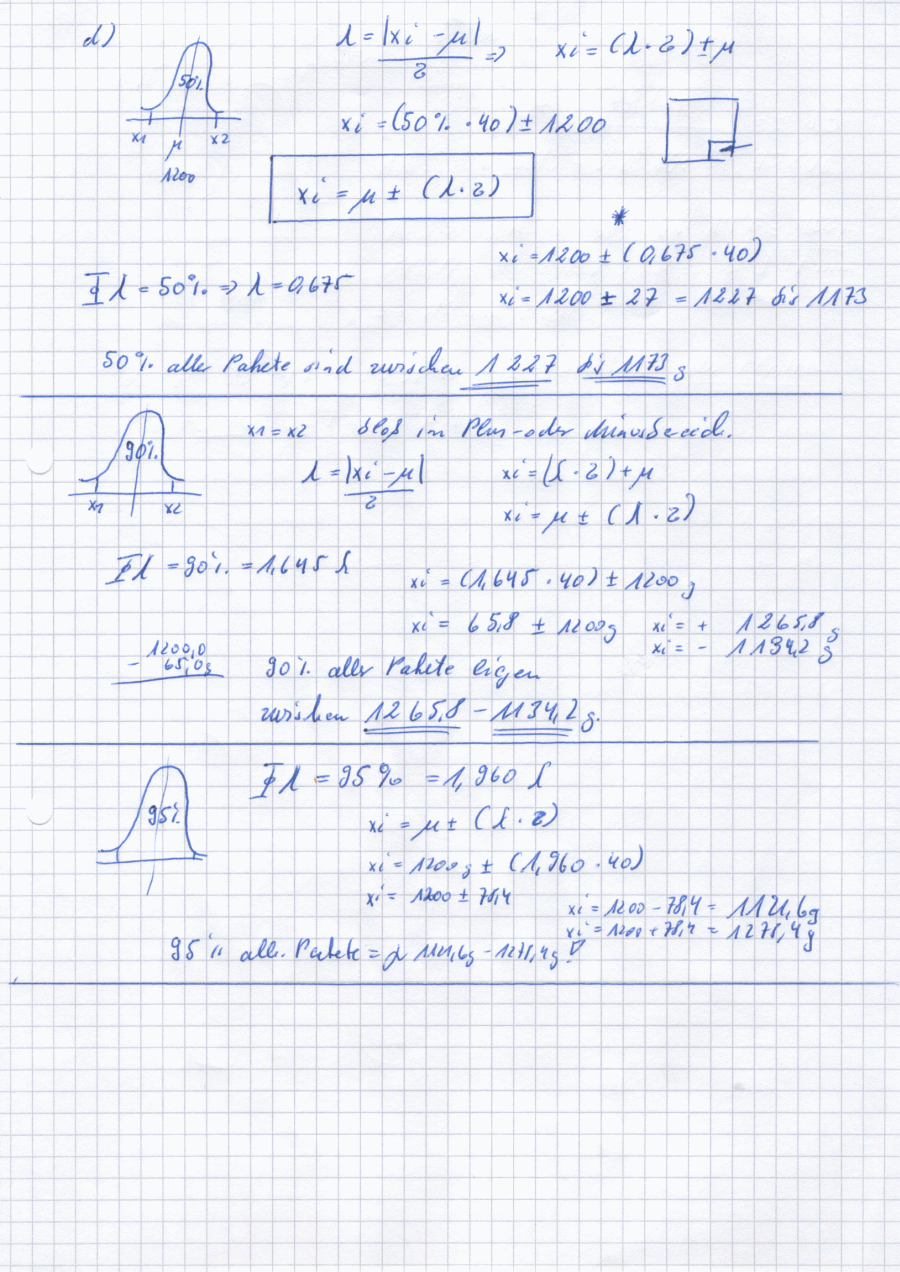 d)
λ = |xi - μ| / σ => xi = (λ · σ) ± μ
50%
xi = (50% · 40) ± 1200
x1 μ x2
1200
xi = μ ± (λ · σ)
*
xi = 1200 ± (0,675 · 40)
Φλ = 50% => λ = 0,675
xi = 1200 ± 27 = 1227 bis 1173
50% aller Pakete sind zwischen 1227 bis 1173 g
90%
x1 = x2 bloß in Plus- oder Minusbereich.
λ = |xi - μ| / σ xi = (λ · σ) + μ
x1 x2
xi = μ ± (λ · σ)
Φλ = 90% = 1,645 λ
xi = (1,645 · 40) ± 1200 g
xi = 65,8 ± 1200g xi = + 1265,8 g
xi = - 1134,2 g
1200,0
- 65,0g
90% aller Pakete ligen
zwischen 1265,8 - 1134,2 g.
95%
Φλ = 95% = 1,960 λ
xi = μ ± (λ · σ)
xi = 1200 g ± (1,960 · 40)
xi = 1200 ± 78,4
xi = 1200 - 78,4 = 1121,6g
xi = 1200 + 78,4 = 1278,4 g
95% alle. Pakete = 1121,6g - 1278,4g!